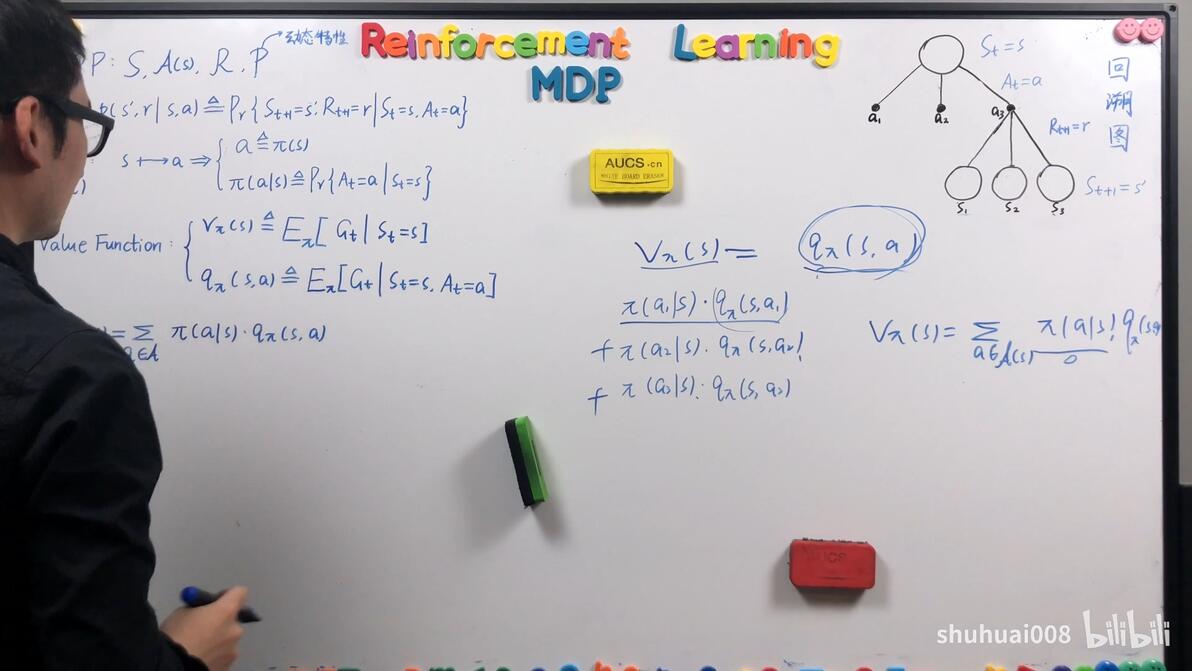 Reinforcement Learning
MDP
P: S, A(s), R, P → 动态特性
p(s',r|s,a) ≜ Pr{S_{t+1}=s', R_{t+1}=r | S_t=s, A_t=a}
: s ↦ a ⇒ { a ≜ π(s)
π(a|s) ≜ Pr{A_t=a | S_t=s}
Value Function: { V_π(s) ≜ E_π[G_t | S_t=s]
q_π(s,a) ≜ E_π[G_t | S_t=s, A_t=a]
) = Σ_{a∈A} π(a|s)·q_π(s,a)
AUCS.cn
WHITE BOARD ERASER
V_π(s) = q_π(s,a)
π(a₁|s)·q_π(s,a₁)
+ π(a₂|s)·q_π(s,a₂)
+ π(a₃|s)·q_π(s,a₃)
V_π(s) = Σ_{a∈A(s)} π(a|s) q_π(s,a
S_t=s
A_t=a
a₁ a₂ a₃
R_{t+1}=r
S_{t+1}=s'
s₁ s₂ s₃
回溯图
AUCS
shuhuai008 bilibili